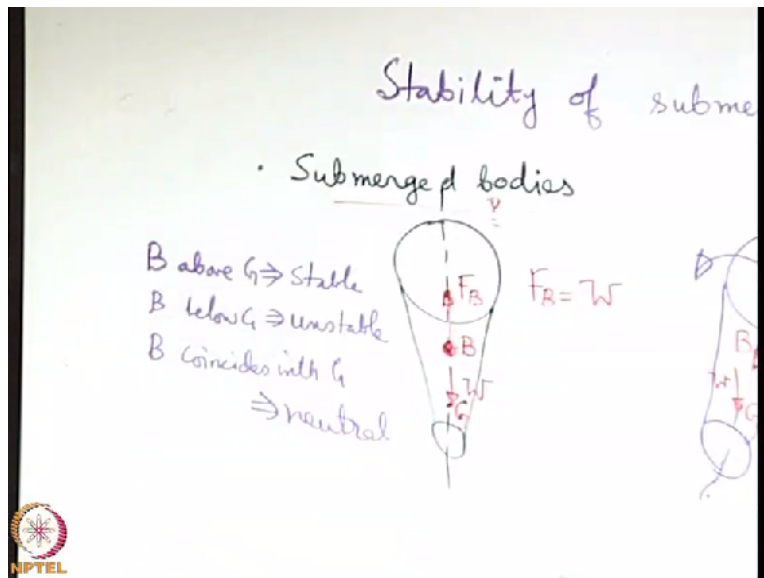 Stability of subme
· Submerged bodies
V
B above G ⇒ stable
B below G ⇒ unstable
B coincides with G
⇒ neutral
F_B
F_B = W
B
W
G
B
W
G
NPTEL